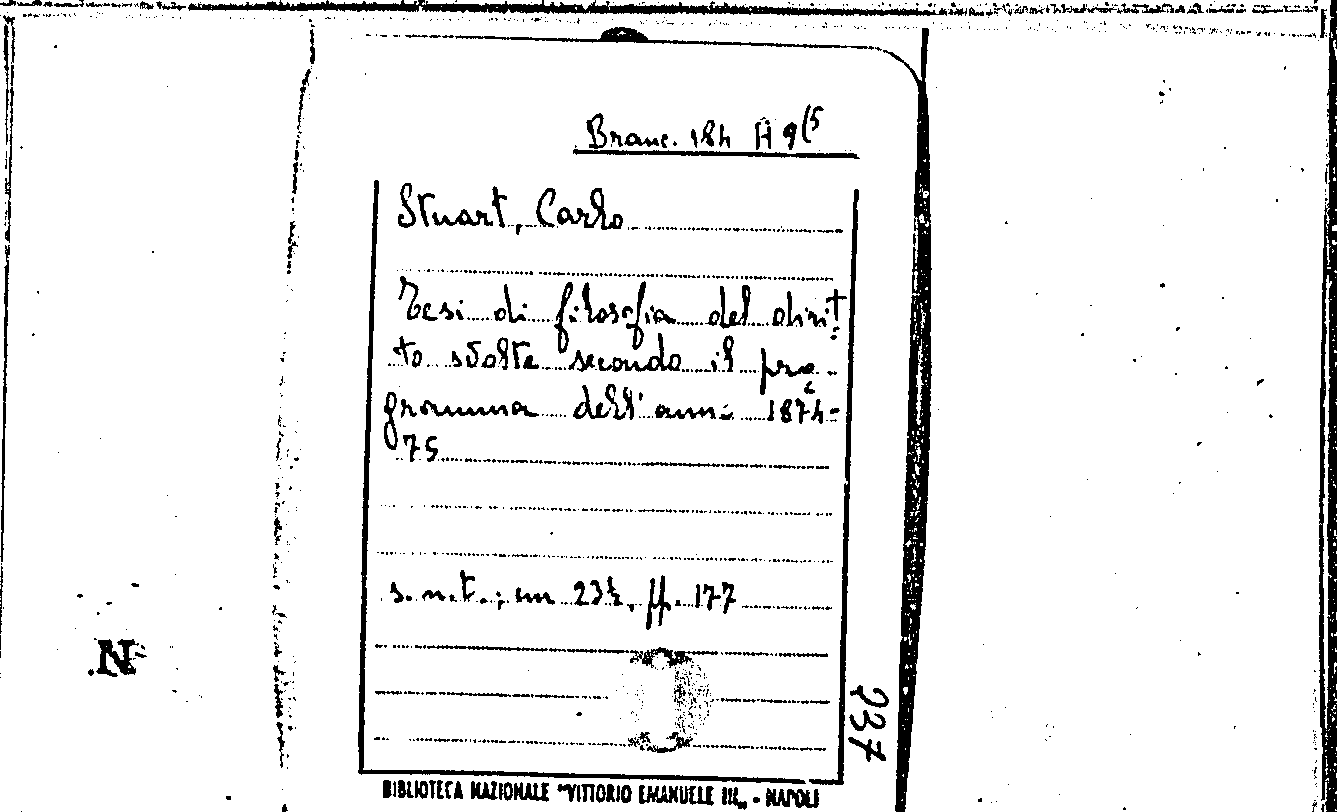 Branc. 184 A 9(5
Stuart, Carlo
Tesi di filosofia del dirit-
to svolte secondo il pro-
gramma dell'anno 1874-
75
s.n.t.; cm 23½, pp. 177
237
N
BIBLIOTECA NAZIONALE "VITTORIO EMANUELE III„ - NAPOLI